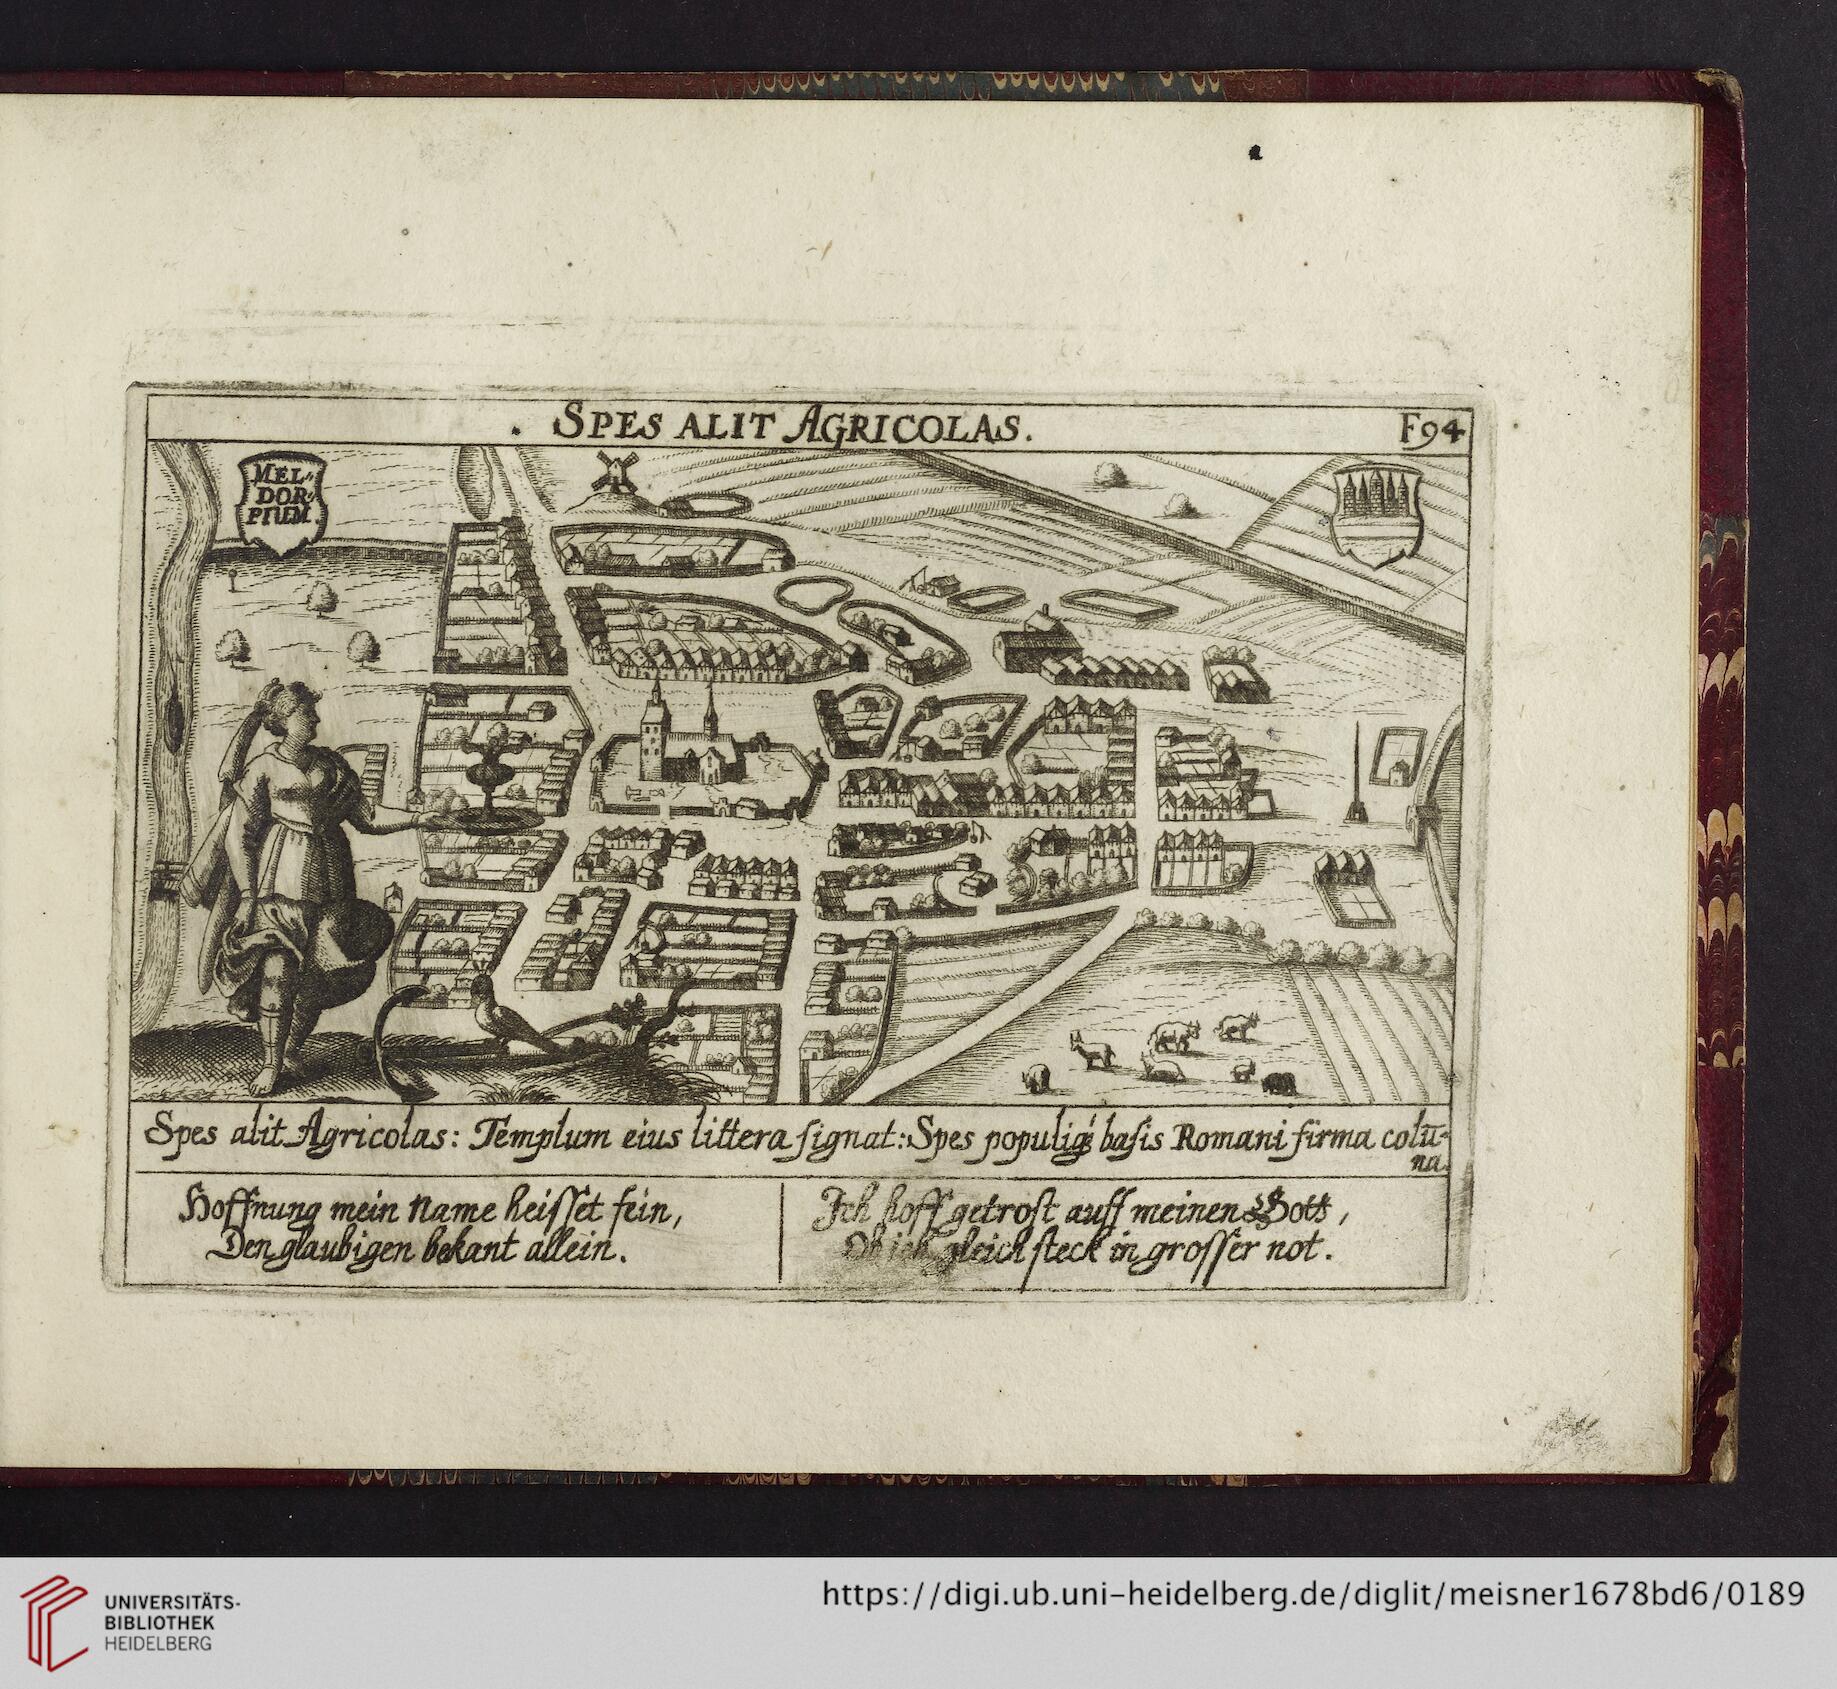 SPES ALIT AGRICOLAS.
F94
MEL-
DOR-
PIUM.
Spes alit Agricolas: Templum eius littera signat: Spes populiq́ basis Romani firma colū-
na.
Hoffnung mein Name heisset fein,
Den glaubigen bekant allein.
Ich hoff getrost auff meinen Gott,
Ob ich gleich steck in grosser not.
UNIVERSITÄTS-
BIBLIOTHEK
HEIDELBERG
https://digi.ub.uni-heidelberg.de/diglit/meisner1678bd6/0189